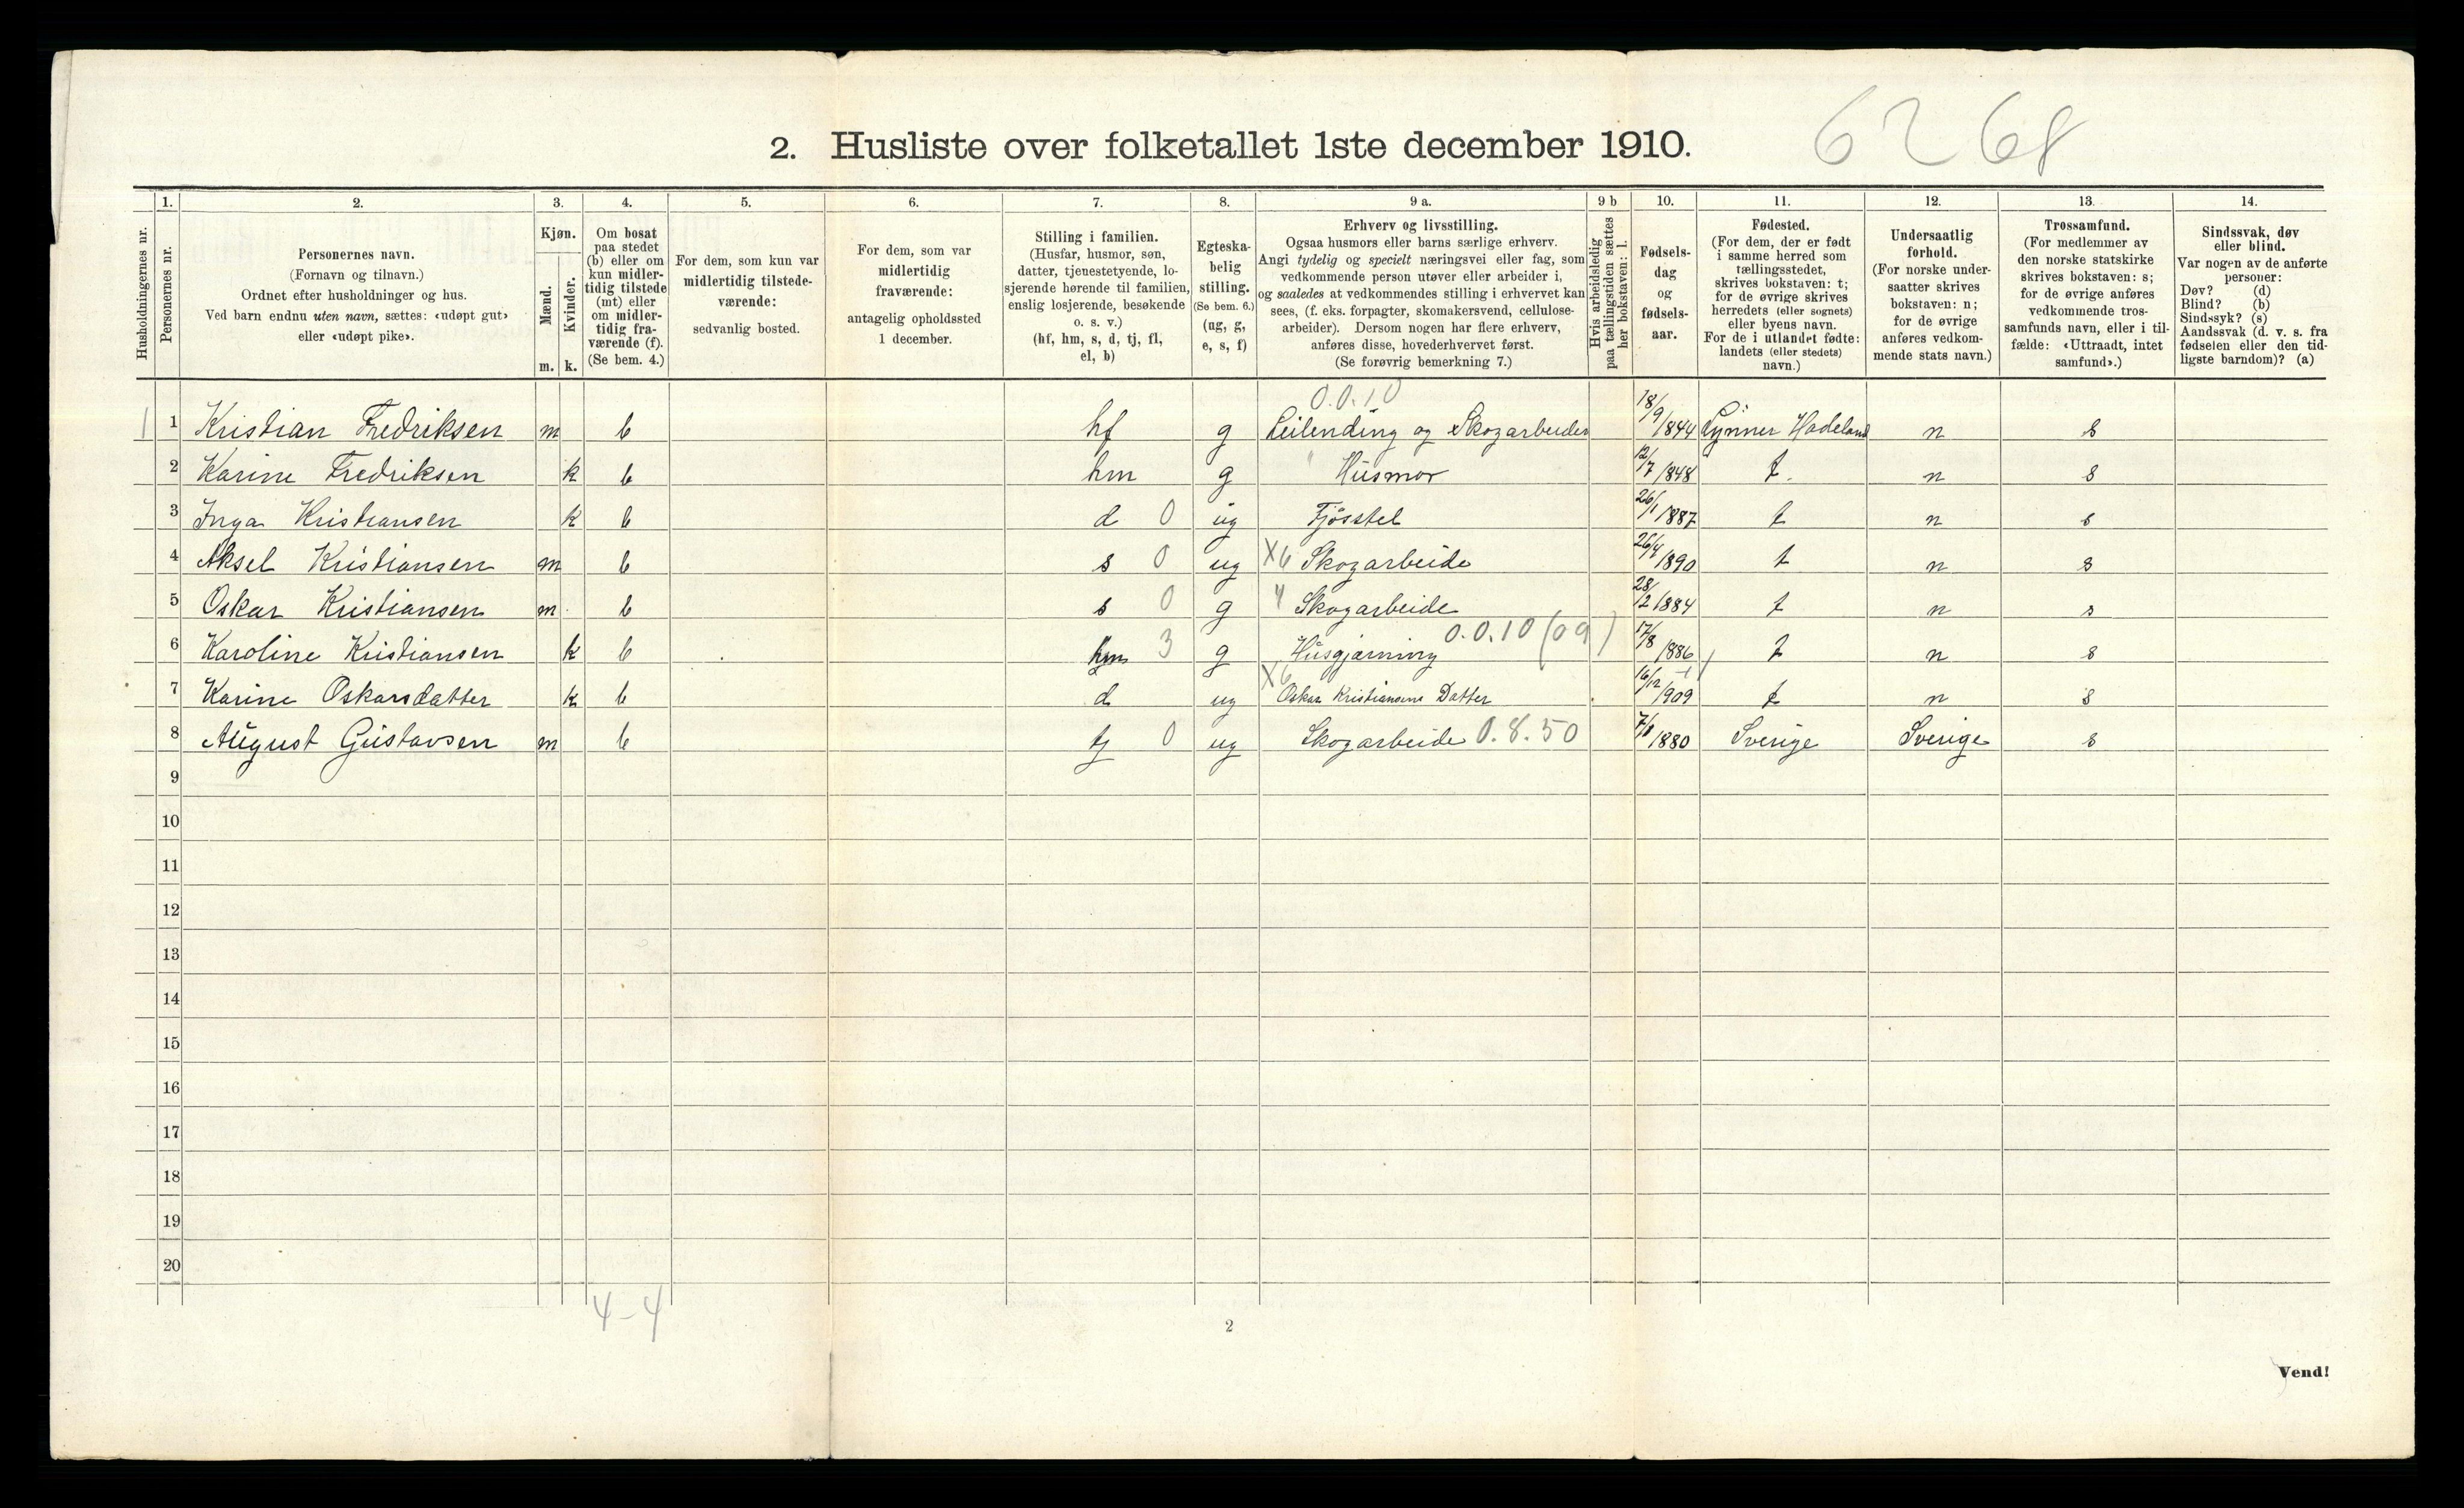 62 68
2. Husliste over folketallet 1ste december 1910.
Husholdningernes nr.
1. Personernes nr.
2.
Personernes navn.
(Fornavn og tilnavn.)
Ordnet efter husholdninger og hus.
Ved barn endnu uten navn, sættes: «udøpt gut»
eller «udøpt pike».
3.
Kjøn.
Mænd. Kvinder.
m. k.
4.
Om bosat
paa stedet
(b) eller om
kun midler-
tidig tilstede
(mt) eller
om midler-
tidig fra-
værende (f).
(Se bem. 4.)
5.
For dem, som kun var
midlertidig tilstede-
værende:
sedvanlig bosted.
6.
For dem, som var
midlertidig
fraværende:
antagelig opholdssted
1 december.
7.
Stilling i familien.
(Husfar, husmor, søn,
datter, tjenestetyende, lo-
sjerende hørende til familien,
enslig losjerende, besøkende
o. s. v.)
(hf, hm, s, d, tj, fl,
el, b)
8.
Egteska-
belig
stilling.
(Se bem. 6.)
(ug, g,
e, s, f)
9 a.
Erhverv og livsstilling.
Ogsaa husmors eller barns særlige erhverv.
Angi tydelig og specielt næringsvei eller fag, som
vedkommende person utøver eller arbeider i,
og saaledes at vedkommendes stilling i erhvervet kan
sees, (f. eks. forpagter, skomakersvend, cellulose-
arbeider). Dersom nogen har flere erhverv,
anføres disse, hovederhvervet først.
(Se forøvrig bemerkning 7.)
9 b
Hvis arbeidsledig
paa tællingstiden sættes
her bokstaven: l.
10.
Fødsels-
dag
og
fødsels-
aar.
11.
Fødested.
(For dem, der er født
i samme herred som
tællingsstedet,
skrives bokstaven: t;
for de øvrige skrives
herredets (eller sognets)
eller byens navn.
For de i utlandet fødte:
landets (eller stedets)
navn.)
12.
Undersaatlig
forhold.
(For norske under-
saatter skrives
bokstaven: n;
for de øvrige
anføres vedkom-
mende stats navn.)
13.
Trossamfund.
(For medlemmer av
den norske statskirke
skrives bokstaven: s;
for de øvrige anføres
vedkommende tros-
samfunds navn, eller i til-
fælde: «Uttraadt, intet
samfund».)
14.
Sindssvak, døv
eller blind.
Var nogen av de anførte
personer:
Døv? (d)
Blind? (b)
Sindssyk? (s)
Aandssvak (d. v. s. fra
fødselen eller den tid-
ligste barndom)? (a)
0.0.10
1 1 Kristian Fredriksen m b hf g Leilending og Skogarbeider 18/9/1844 Lynner Hadeland n s
2 Karine Fredriksen k b hm g " Husmor 12/7/1848 t. n s
3 Inga Kristiansen k b d 0 ug Fjösstel 26/1/1887 t n s
4 Aksel Kristiansen m b s 0 ug X6 Skogarbeide 26/4/1890 t n s
5 Oskar Kristiansen m b s 0 g " Skogarbeide 28/2 1884 t n s
6 Karoline Kristiansen k b hm 3 g Husgjærning 0.0.10 (09) 17/8 1886 t n s
7 Karine Oskarsdatter k b d ug X6 Oskar Kristiansens Datter 16/12 1909 t n s
8 August Gustavsen m b tj 0 ug Skogarbeide 0.8.50 7/8 1880 Sverige Sverige s
9
10
11
12
13
14
15
16
17
18
19
20
4-4
2
Vend!